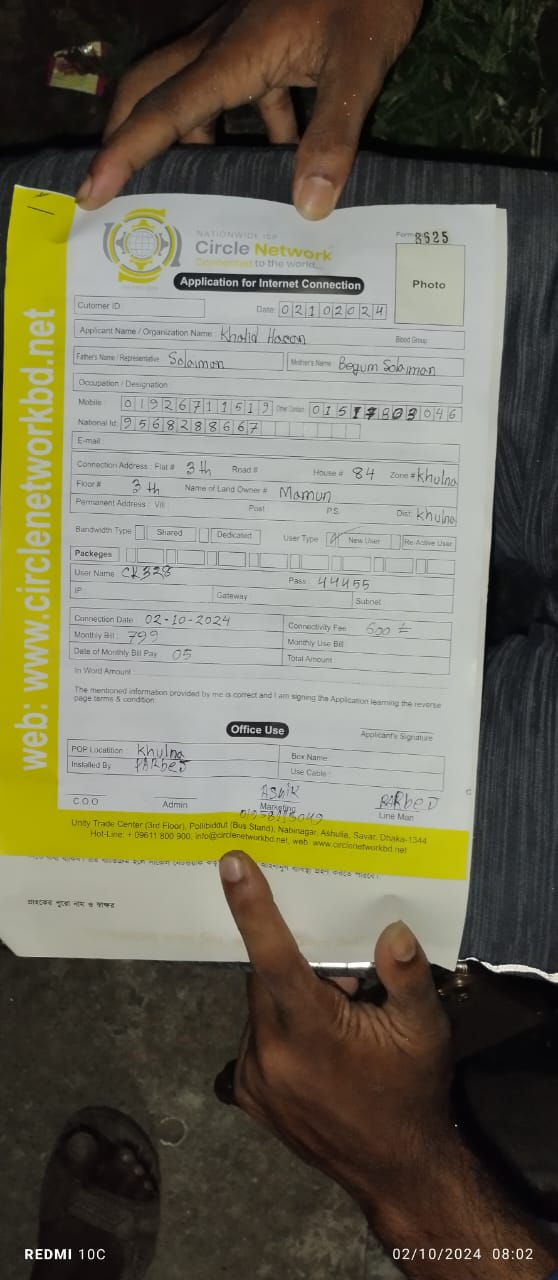 web: www.circlenetworkbd.net
NATIONWIDE ISP
Circle Network
Connected to the world...
Form 8625
Photo
Application for Internet Connection
Cutomer ID
Date: 02102024
Applicant Name / Organization Name : Khalid Hasan Blood Group :
Father's Name / Representative Solaiman Mother's Name : Begum Solaiman
Occupation / Designation :
Mobile : 01926711519 Other Contact 01517803046
National Id: 9568288667
E-mail
Connection Address : Flat # 3 th Road # House # 84 Zone # Khulna
Floor # 3 th Name of Land Owner # Mamun
Permanent Address : Vill Post P.S. Dist. Khulna
Bandwidth Type Shared Dedicated User Type : New User Re-Active User
Packeges
User Name : CK328 Pass : 44455
IP : Gateway Subnet
Connection Date 02-10-2024 Connectivity Fee: 600 =
Monthly Bill : 799 Monthly Use Bill
Date of Monthly Bill Pay: 05 Total Amount
In Word Amount :
The mentioned information provided by me is correct and I am signing the Application learning the reverse
page terms & condition
Office Use
Applicant's Signature
POP Locatition : Khulna Box Name
Installed By PARbeD Use Cable :
ASIK PARbeD
C.O.O Admin Marketing Line Man
Unity Trade Center (3rd Floor), Pollibiddut (Bus Stand), Nabinagar, Ashulia, Savar, Dhaka-1344
Hot-Line: + 09611 800 900, info@circlenetworkbd.net, web: www.circlenetworkbd.net
গ্রাহকের পুরো নাম ও স্বাক্ষর
REDMI 10C
02/10/2024 08:02